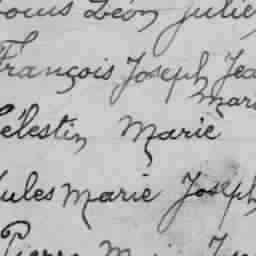 Louis Léon Julie
François Joseph Jea
Mari
Célestin Marie
Jules Marie Joseph
Pierre